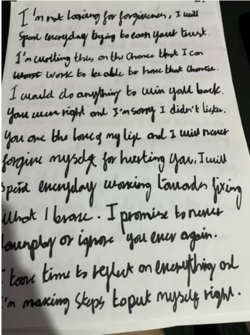 I'm not looking for forgiveness, I will
spend everyday trying to earn your trust.
I'm writing this on the chance that I can
work to be able to have that chance.
I would do anything to win you back.
You were right and I'm sorry I didn't listen.
You are the love of my life and I will never
forgive myself for hurting you, I will
spend everyday working towards fixing
what I broke. I promise to never
downplay or ignore you ever again.
I took time to reflect on everything and
I'm making steps to put myself right.